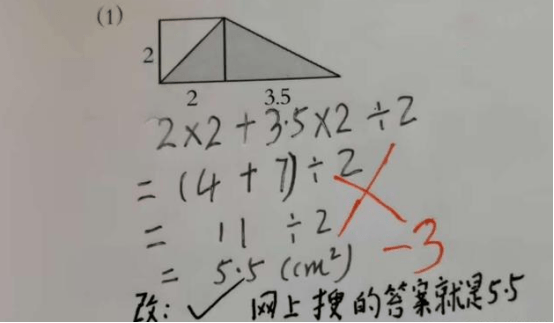 (1)
2
2 3.5
2×2+3.5×2÷2
=(4+7)÷2
= 11 ÷2
= 5.5 (cm²) -3
改: ✓ 网上搜的答案就是5.5